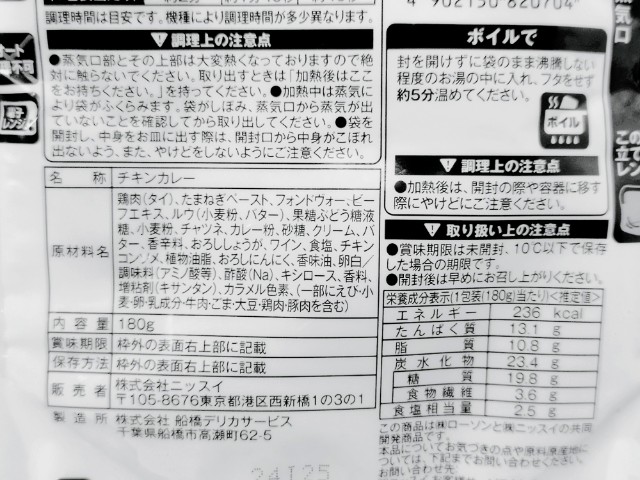 調理時間は目安です。機種により調理時間が多少異なります。
調理上の注意点
●蒸気口部とその上部は大変熱くなっておりますので絶
対に触らないでください。取り出すときは「加熱後はここ
をお持ちください。」を持ってください。●加熱中は蒸気に
より袋がふくらみます。袋がしぼみ、蒸気口から蒸気が出
ていないことを確認してから取り出してください。●袋を
開封し、中身をお皿に出す際は、開封口から中身がこぼれ
出ないよう、また、やけどをしないようにご注意ください。
名 称 チキンカレー
原材料名
鶏肉(タイ)、たまねぎペースト、フォンドヴォー、ビー
フエキス、ルウ(小麦粉、バター)、果糖ぶどう糖液
糖、小麦粉、チャツネ、カレー粉、砂糖、クリーム、バ
ター、香辛料、おろししょうが、ワイン、食塩、チキン
コンソメ、植物油脂、おろしにんにく、香味油、卵白/
調味料(アミノ酸等)、酢酸(Na)、キシロース、香料、
増粘剤(キサンタン)、カラメル色素、(一部にえび・小
麦・卵・乳成分・牛肉・ごま・大豆・鶏肉・豚肉を含む)
内 容 量 180g
賞味期限 枠外の表面右上部に記載
保存方法 枠外の表面右上部に記載
販 売 者 株式会社ニッスイ
〒105-8676東京都港区西新橋1の3の1
製 造 所 株式会社 船橋デリカサービス
千葉県船橋市高瀬町62-5
24T25
4 902150 820704
ボイルで
封を開けずに袋のまま沸騰しない
程度のお湯の中に入れ、フタをせず
約5分温めてください。
ボイル
調理上の注意点
●加熱後は、開封の際や容器に移す
際にやけどにご注意ください。
取り扱い上の注意点
●賞味期限は未開封、10℃以下で保存
した場合の期限です。
●開封後は早めにお召し上がりください。
栄養成分表示(1包装(180g)当たり)<推定値>
エネルギー 236 kcal
たんぱく質 13.1 g
脂質 10.8 g
炭水化物 23.4 g
糖質 19.8 g
食物繊維 3.6 g
食塩相当量 2.5 g
この商品は㈱ローソンと㈱ニッスイの共同
開発商品です。
本品についてお気づきの点や原料原産地に
ついては、下記までお問い合わせください。
お問い合わせ
蒸気口
この
立て
レン